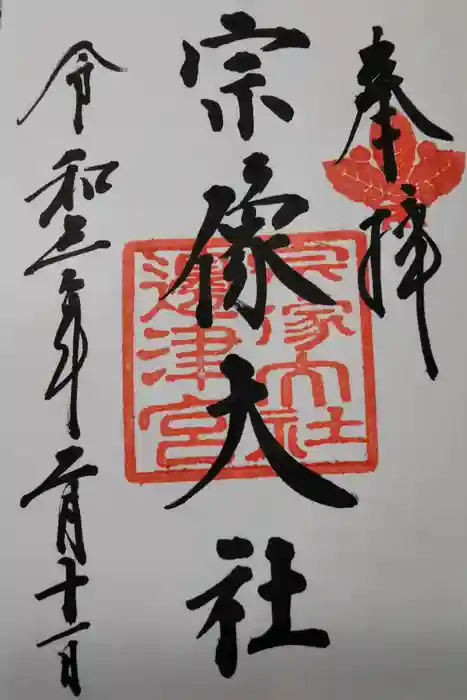 奉拝
宗像大社
宗像大社
邊津宮
令和三年二月十一日